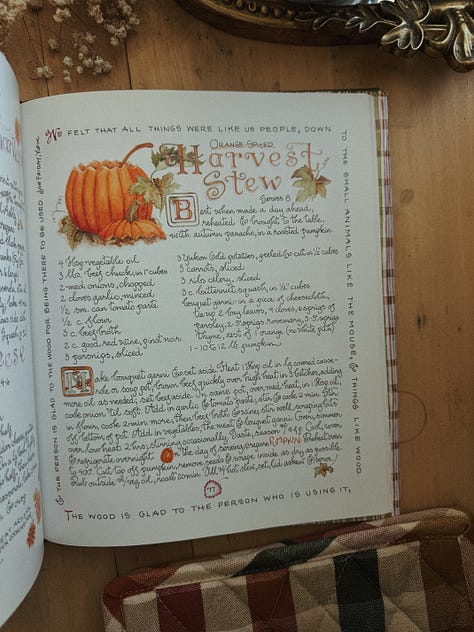 We felt that all things were like us people, down
to the small animals like the mouse, & things like wood.
The wood is glad to the person who is using it,
& the person is glad to the wood for being there to be used.
Orange-Spiced
Harvest
Stew
Serves 8
Best when made a day ahead,
reheated & brought to the table,
with autumn panache, in a roasted pumpkin.
4 Tbsp. vegetable oil
3 lbs. beef chuck, in 1" cubes
2 med. onions, chopped
2 cloves garlic, minced
1/2 sm. can tomato paste
1/2 c. flour
3 c. beef broth
2 c. good red wine, pinot noir
3 parsnips, sliced
3 Yukon Gold potatoes, peeled & cut in 1/2" cubes
5 carrots, sliced
3 ribs celery, sliced
3 c. butternut squash, in 1/2" cubes
Bouquet garni: in a piece of cheesecloth,
tie up 2 bay leaves, 4 cloves, 2 sprigs of
parsley, 2-3 sprigs rosemary, 3-5 sprigs
thyme, zest of 1 orange (no white pith)
1 - 10 to 12 lb. pumpkin
Make bouquet garni & set aside. Heat 1 Tbsp. oil in lg. covered casse-
role or soup pot; brown beef quickly over high heat in 3 batches, adding
more oil as needed; set beef aside. In same pot, over med. heat, in 1 Tbsp. oil,
cook onion 'til soft. Add in garlic & tomato paste; stir & cook 2 min. Stir
in flour, cook 2 min. more, then beef broth & wine; stir well, scraping bits
off bottom of pot. Add in vegetables, the meat & bouquet garni. Cover, simmer
over low heat 2 hrs., stirring occasionally. Taste, season / s & p. Cool, cover
& refrigerate overnight. On the day of serving, prepare PUMPKIN: Preheat oven
to 400°. Cut top off pumpkin, remove seeds & scrape inside as dry as possible.
Rub outside w/ veg. oil, roast 20 min. Fill w/ hot stew, set lid askew & serve!
77